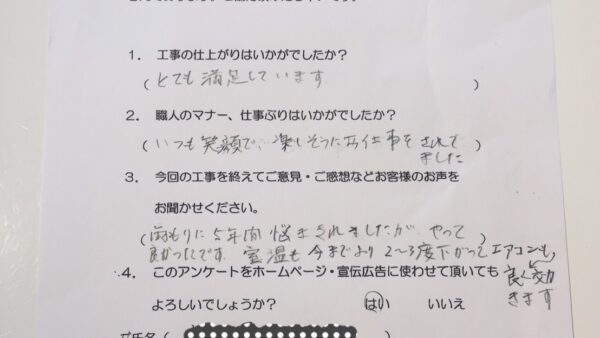 1. 工事の仕上がりはいかがでしたか?
(とても満足しています)
2. 職人のマナー、仕事ぶりはいかがでしたか?
(いつも笑顔で、楽しそうにお仕事をされて
ました)
3. 今回の工事を終えてご意見・ご感想などお客様のお声を
お聞かせください。
(雨もりに5年間悩まされましたが、やって
良かったです。室温も今までより2~3度下がってエアコンも、
良く効
きます)
4. このアンケートをホームページ・宣伝広告に使わせて頂いても
よろしいでしょうか? はい いいえ
氏名(